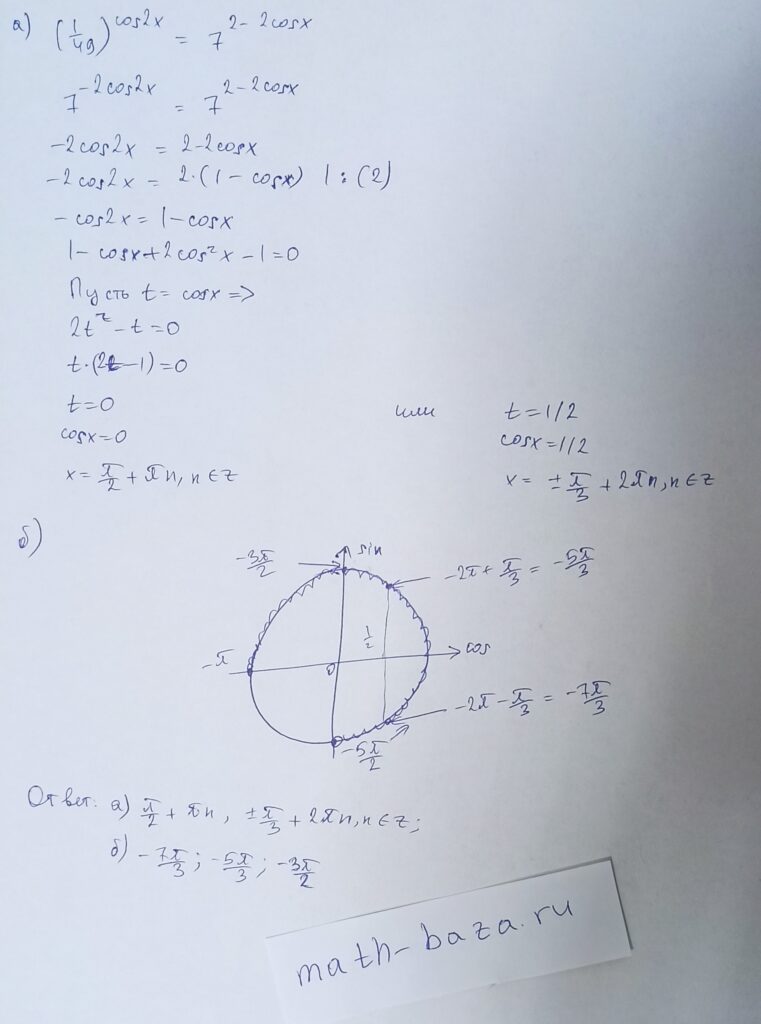 а) (1/49)^cos2x = 7^(2-2cosx)
7^(-2cos2x) = 7^(2-2cosx)
-2cos2x = 2-2cosx
-2cos2x = 2·(1-cosx) |:(2)
-cos2x = 1-cosx
1-cosx+2cos²x-1=0
Пусть t=cosx=>
2t²-t=0
t·(2t-1)=0
t=0 или t=1/2
cosx=0 cosx=1/2
x=π/2+πn, n∈z x=±π/3+2πn, n∈z
б)
sin
-3π/2
-2π+π/3=-5π/3
1/2
cos
-π
0
-2π-π/3=-7π/3
-5π/2
Ответ: а) π/2+πn, ±π/3+2πn, n∈z;
б) -7π/3; -5π/3; -3π/2
math-baza.ru